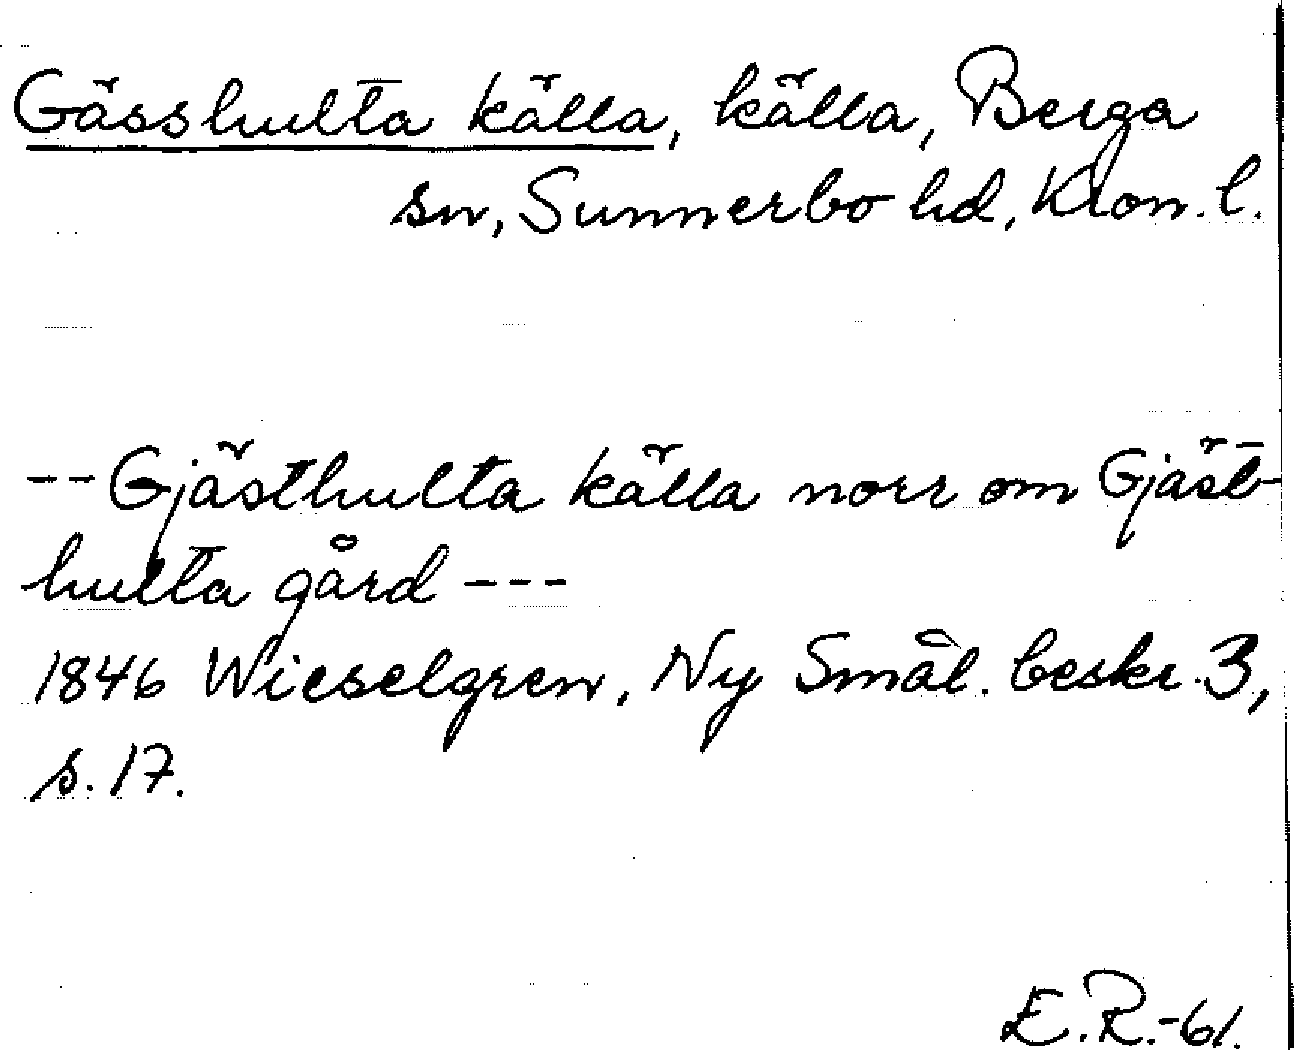 Gässhulta källa, källa, Berga
sn, Sunnerbo hd, Kron. l.
-- Gjästhulta källa norr om Gjäst-
hulta gård ---
1846 Wieselgren, Ny Smål. beskr. 3,
s. 17.
E.R.-61.